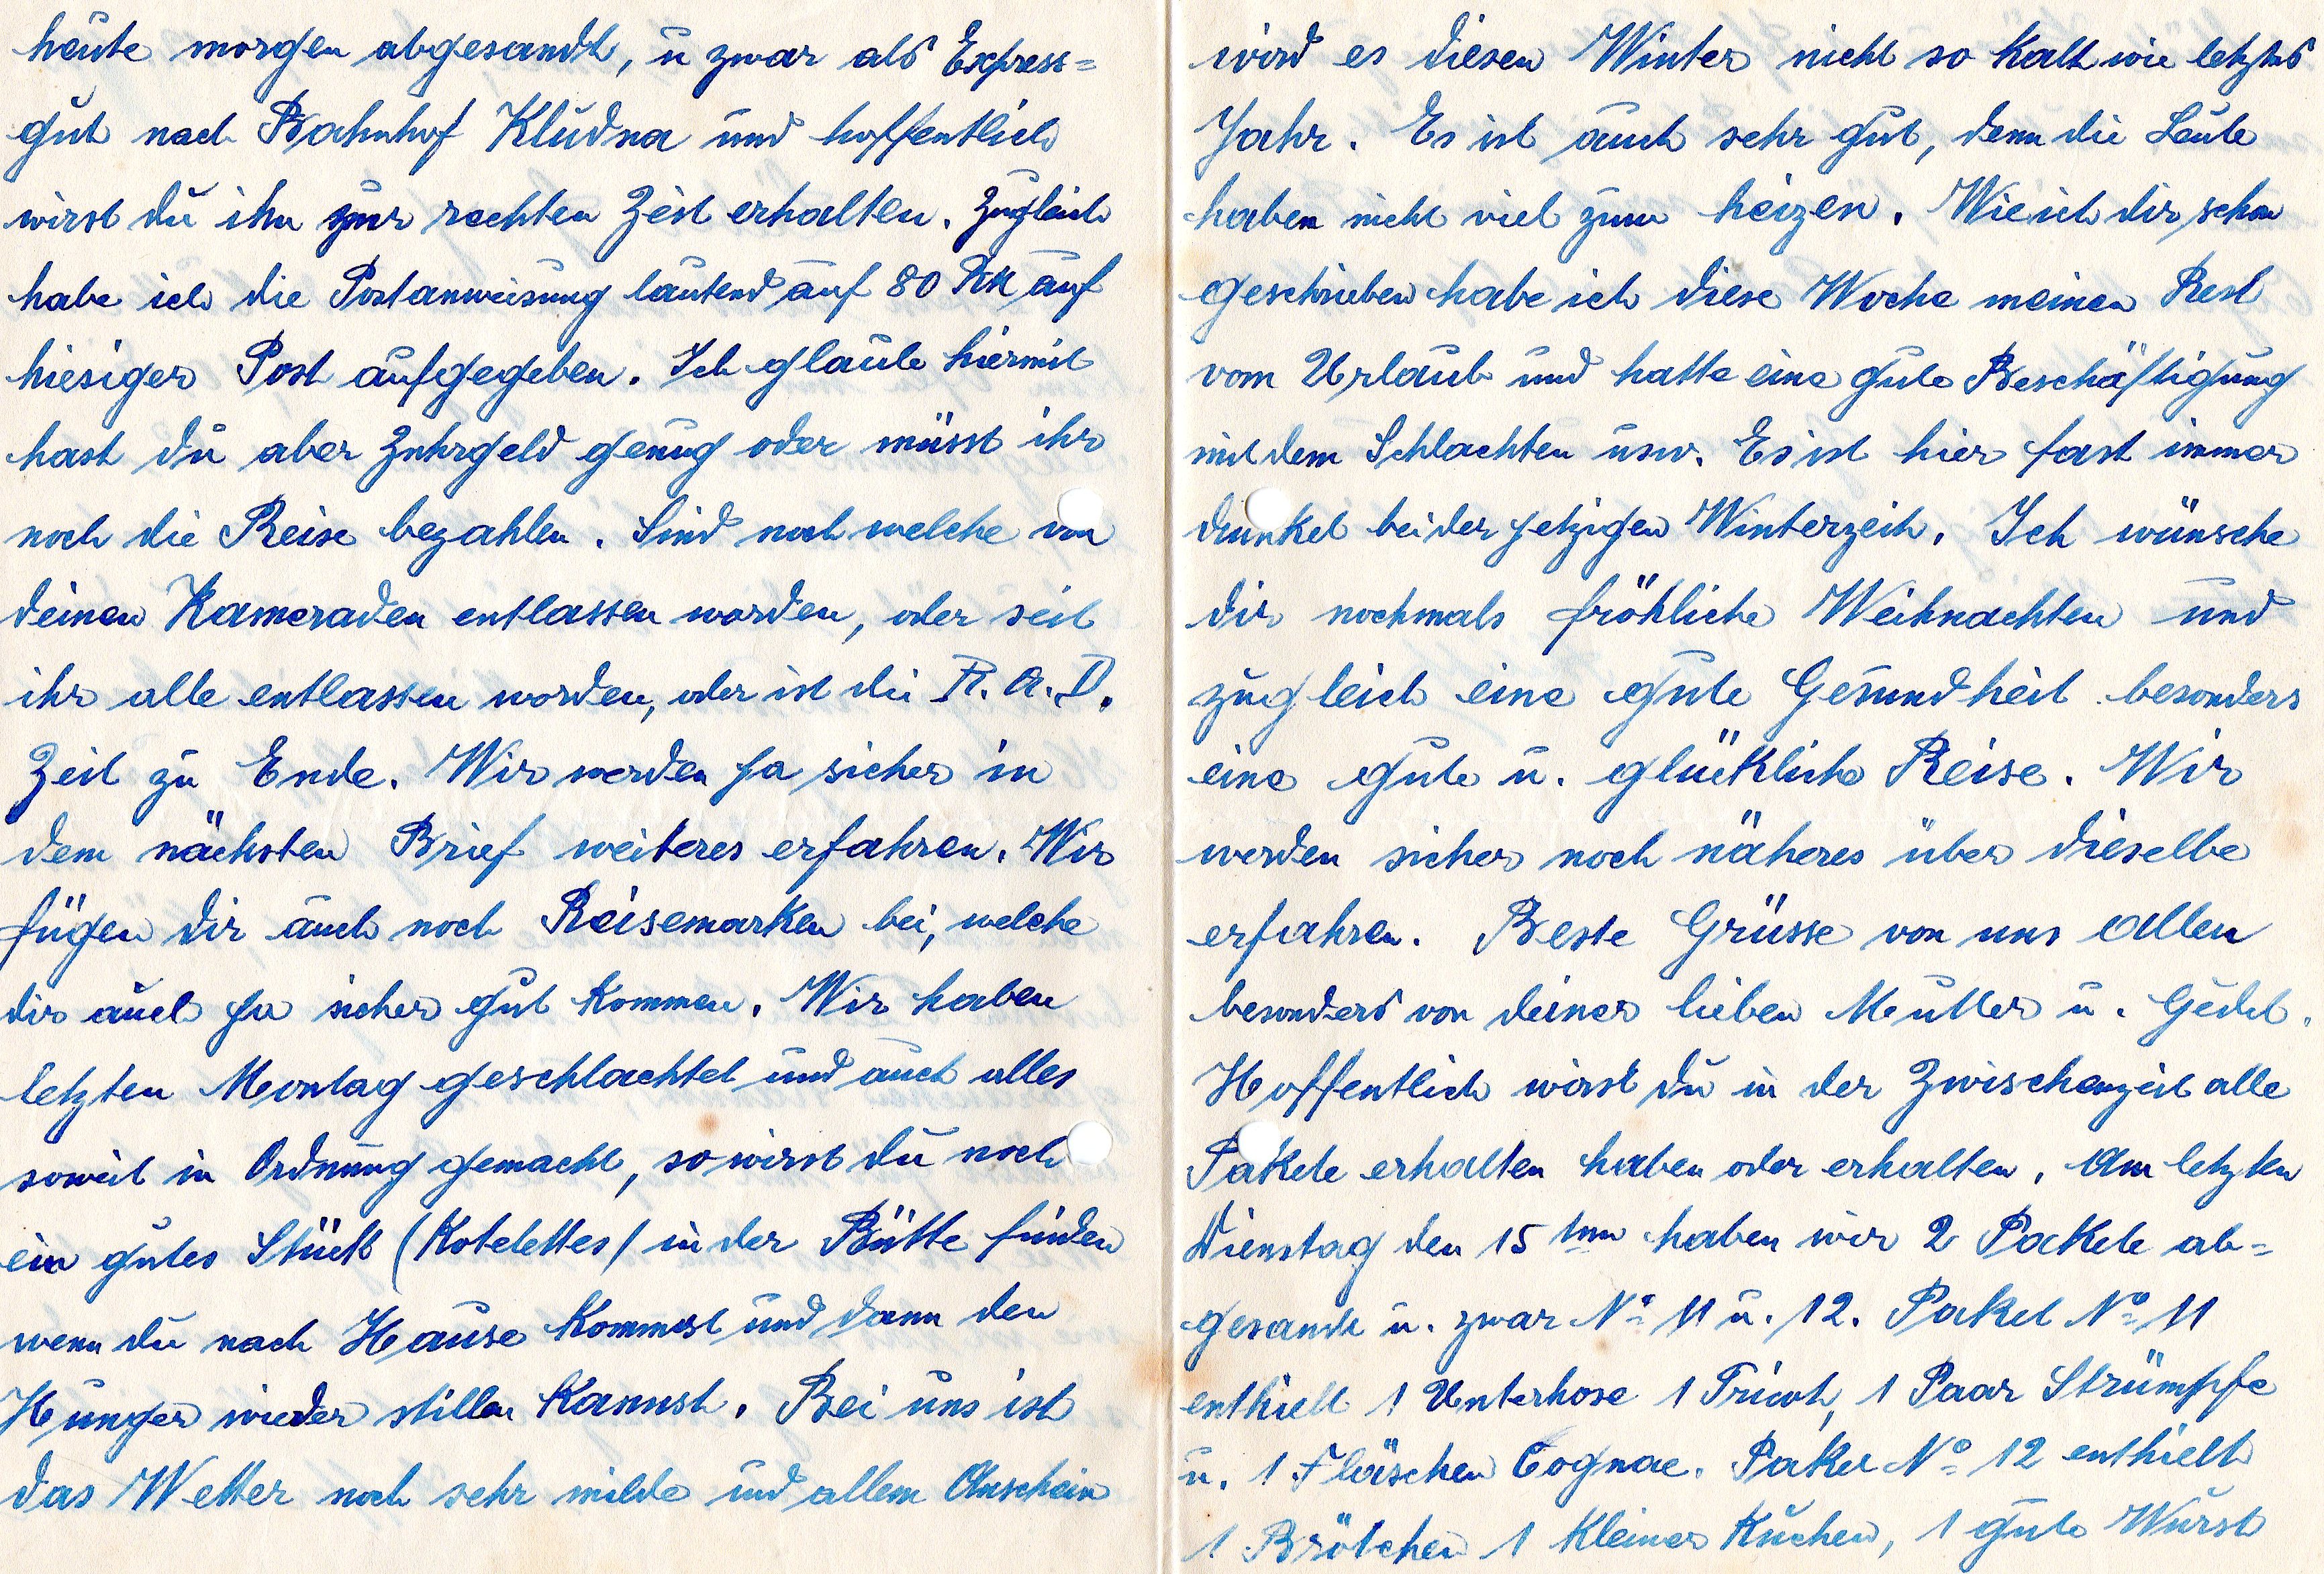 heute morgen abgesandt, u zwar als Express=
gut nach Bahnhof Kludna und hoffentlich
wirst du ihn zur rechten Zeit erhalten. Zugleich
habe ich die Postanweisung lautend auf 80 RM auf
hiesiger Post aufgegeben. Ich glaube hiermit
hast du aber Zehrgeld genug oder müsst ihr
noch die Reise bezahlen. Sind noch welche von
deinen Kameraden entlassen worden, oder seit
ihr alle entlassen worden, oder ist die R.A.D.
Zeit zu Ende. Wir werden ja sicher in
dem nächsten Brief weiteres erfahren. Wir
fügen dir auch noch Reisemarken bei, welche
dir auch ja sicher gut kommen. Wir haben
letzten Montag geschlachtet und auch alles
soweit in Ordnung gemacht, so wirst du noch
ein gutes Stück (Kotelettes) in der Bütte finden
wenn du nach Hause kommst und dann den
Hunger wieder stillen kannst. Bei uns ist
das Wetter noch sehr milde und allem Anschein
wird es diesen Winter nicht so kalt wie letztes
Jahr. Es ist auch sehr gut, denn die Leute
haben nicht viel zum heizen. Wie ich dir schon
geschrieben habe ich diese Woche meinen Rest
vom Urlaub und hatte eine gute Beschäftigung
mit dem Schlachten usw. Es ist hier fast immer
dunkel bei der jetzigen Winterzeit. Ich wünsche
dir nochmals fröhliche Weihnachten und
zugleich eine gute Gesundheit besonders
eine gute u. glückliche Reise. Wir
werden sicher noch näheres über dieselbe
erfahren. Beste Grüsse von uns Allen
besonders von deiner lieben Mutter u. Gedel.
Hoffentlich wirst du in der Zwischenzeit alle
Pakete erhalten haben oder erhalten. Am letzten
Dienstag den 15ten haben wir 2 Pakete ab=
gesandt u. zwar No 11 u. 12. Paket No 11
enthielt 1 Unterhose 1 Tricot, 1 Paar Strümpfe
u. 1 Fläschen Cognac. Paket No 12 enthielt
1 Brötchen 1 kleiner Kuchen, 1 gute Wurst